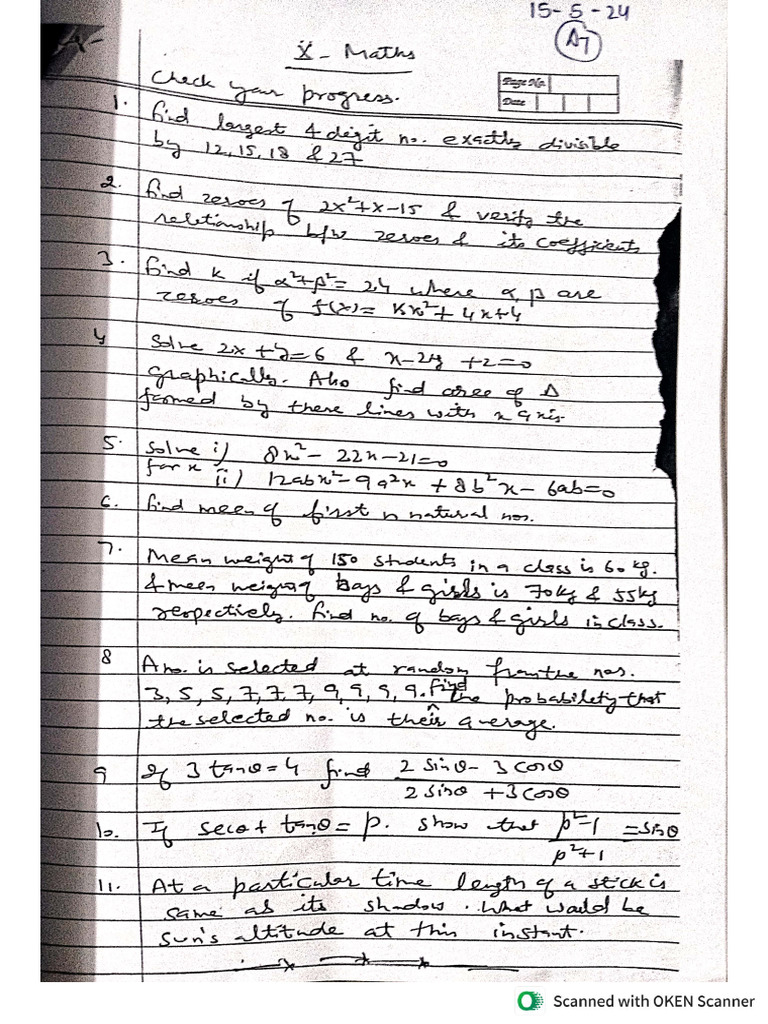 15-5-24
A7
X - Maths
Check your progress.
Page No.
Date
1. Find largest 4 digit no. exactly divisible
by 12, 15, 18 & 27
2. find zeroes of 2x²+x-15 & verify the
relationship b/w zeroes & its coefficients
3. Find K if α²+β²= 24 where α, β are
zeroes of f(x)= Kx²+ 4x+4
4 Solve 2x+y=6 & x-2y+2=0
graphically. Also find area of Δ
formed by these lines with x axis.
5. Solve i) 8x²- 22x-21=0
for x ii) 12abx²- 9a²x + 8b²x - 6ab=0
6. Find mean of first n natural nos.
7. Mean weight of 150 students in a class is 60 kg.
& mean weight of boys & girls is 70kg & 55kg
respectively. Find no. of boys & girls in class.
8 A no. is selected at random from the nos.
3, 5, 5, 7, 7, 7, 9, 9, 9, 9. find the probability that
the selected no. is their average.
9 If 3 tanθ=4 find 2 sinθ- 3 cosθ
2 sinθ + 3 cosθ
10. If secθ + tanθ = p. show that p²-1 = sinθ
p²+1
11. At a particular time length of a stick is
same as its shadow. What would be
sun's altitude at this instant.
Scanned with OKEN Scanner